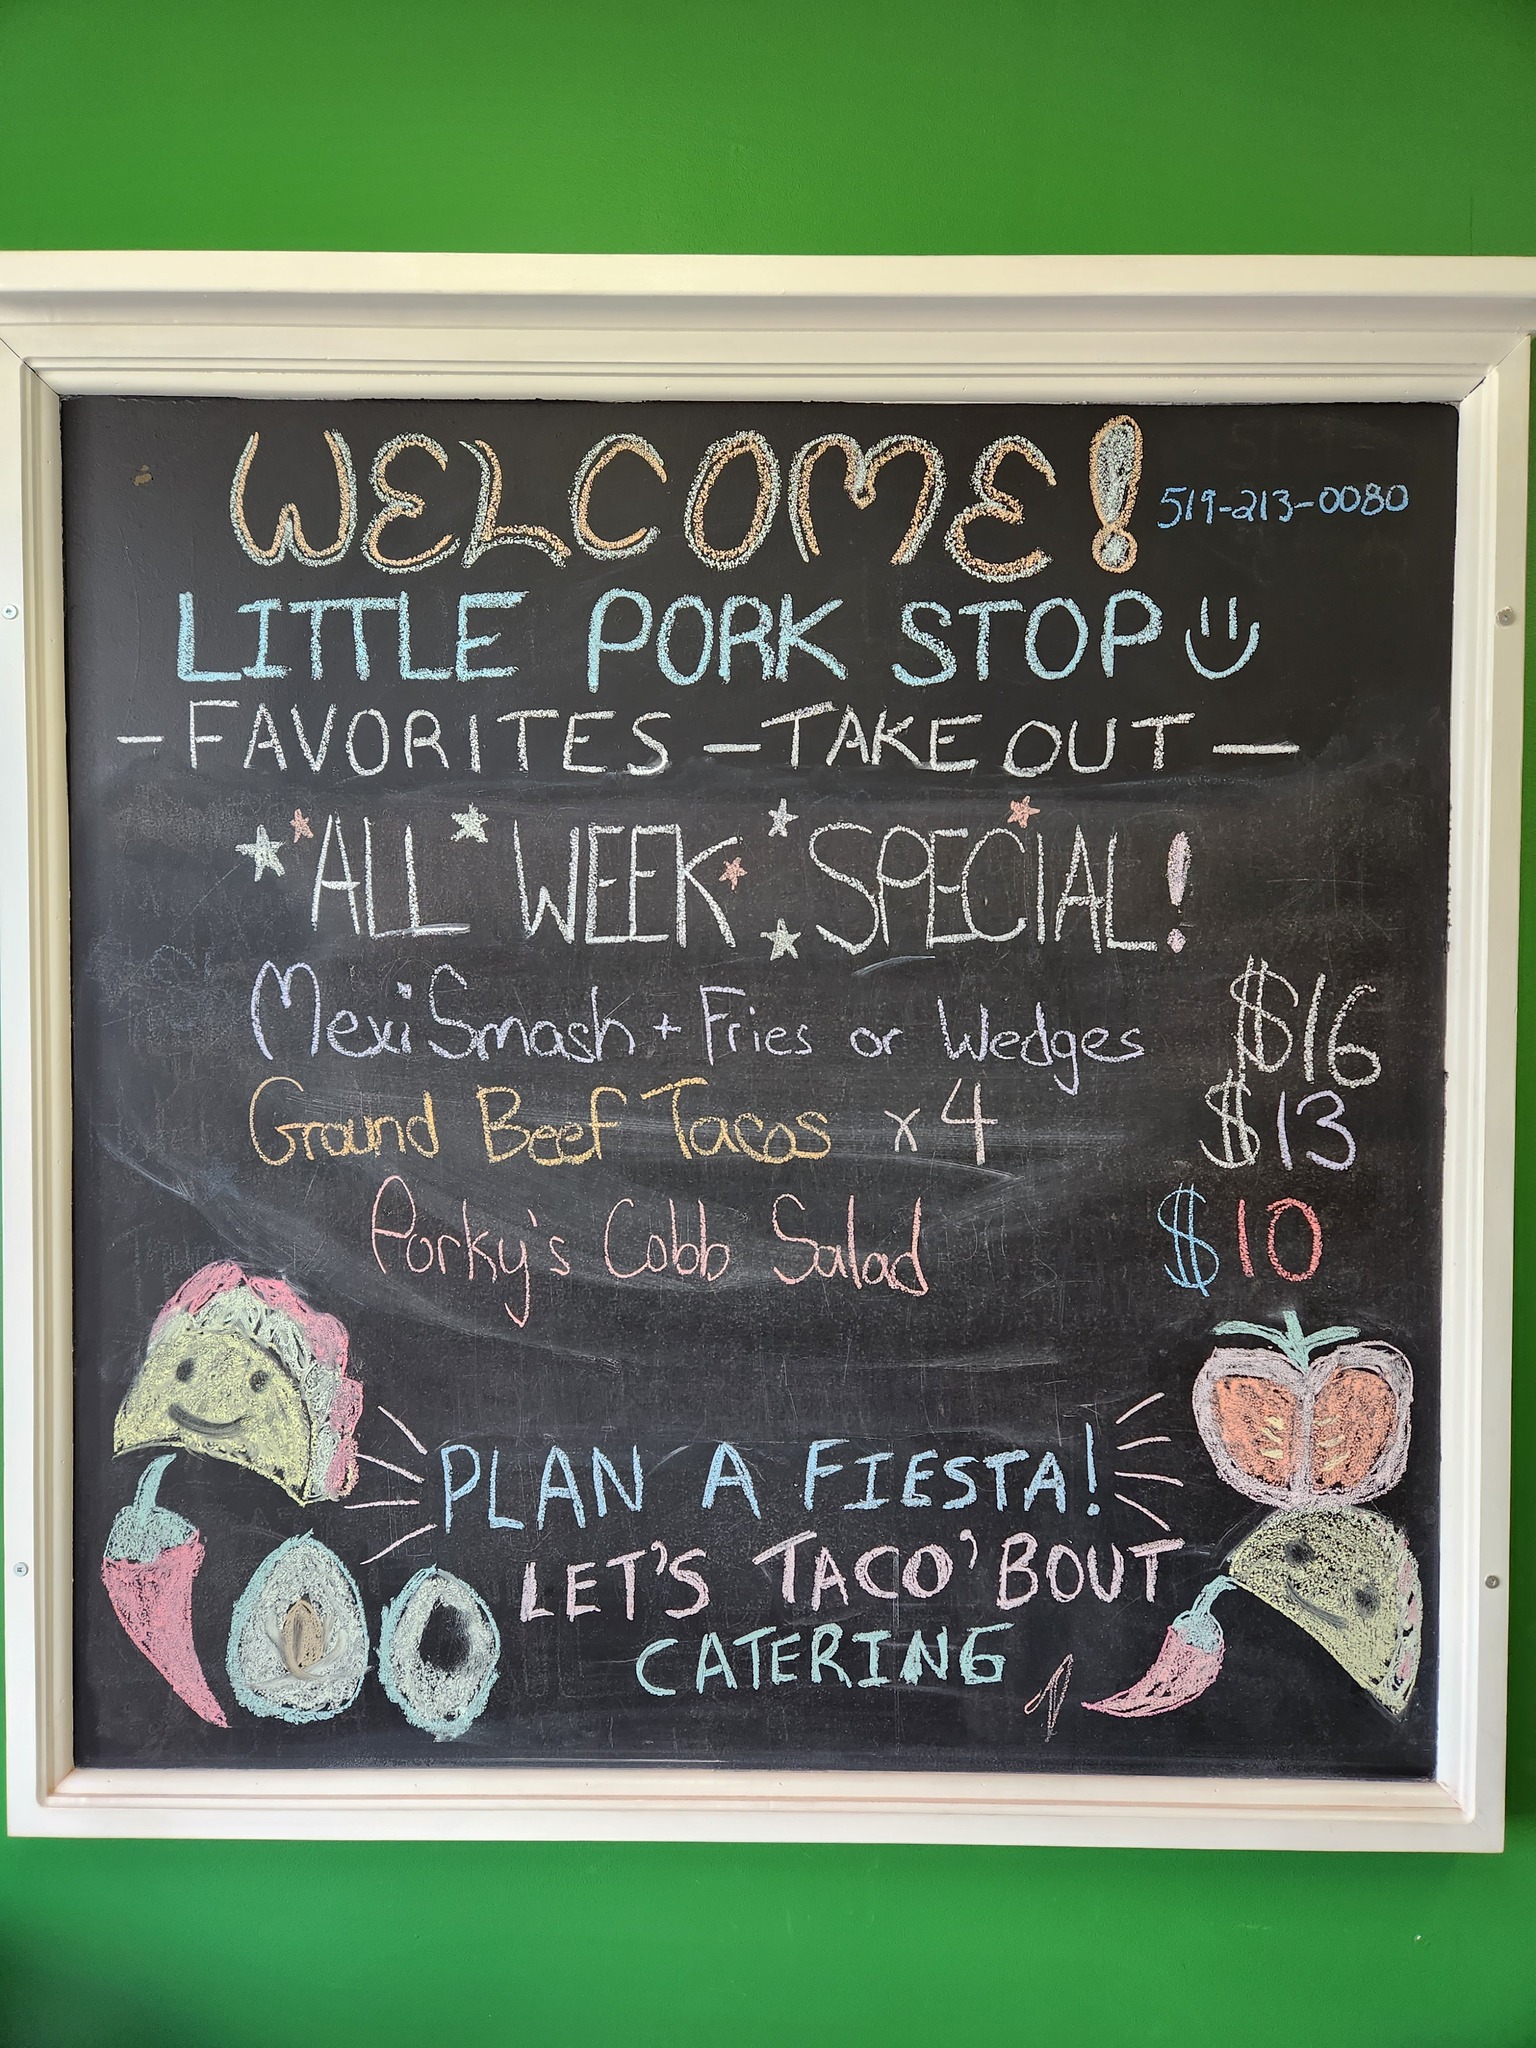 WELCOME! 519-213-0080
LITTLE PORK STOP
- FAVORITES - TAKE OUT -
ALL WEEK SPECIAL!
Mexi Smash + Fries or Wedges $16
Ground Beef Tacos x4 $13
Porky's Cobb Salad $10
PLAN A FIESTA!
LET'S TACO'BOUT
CATERING